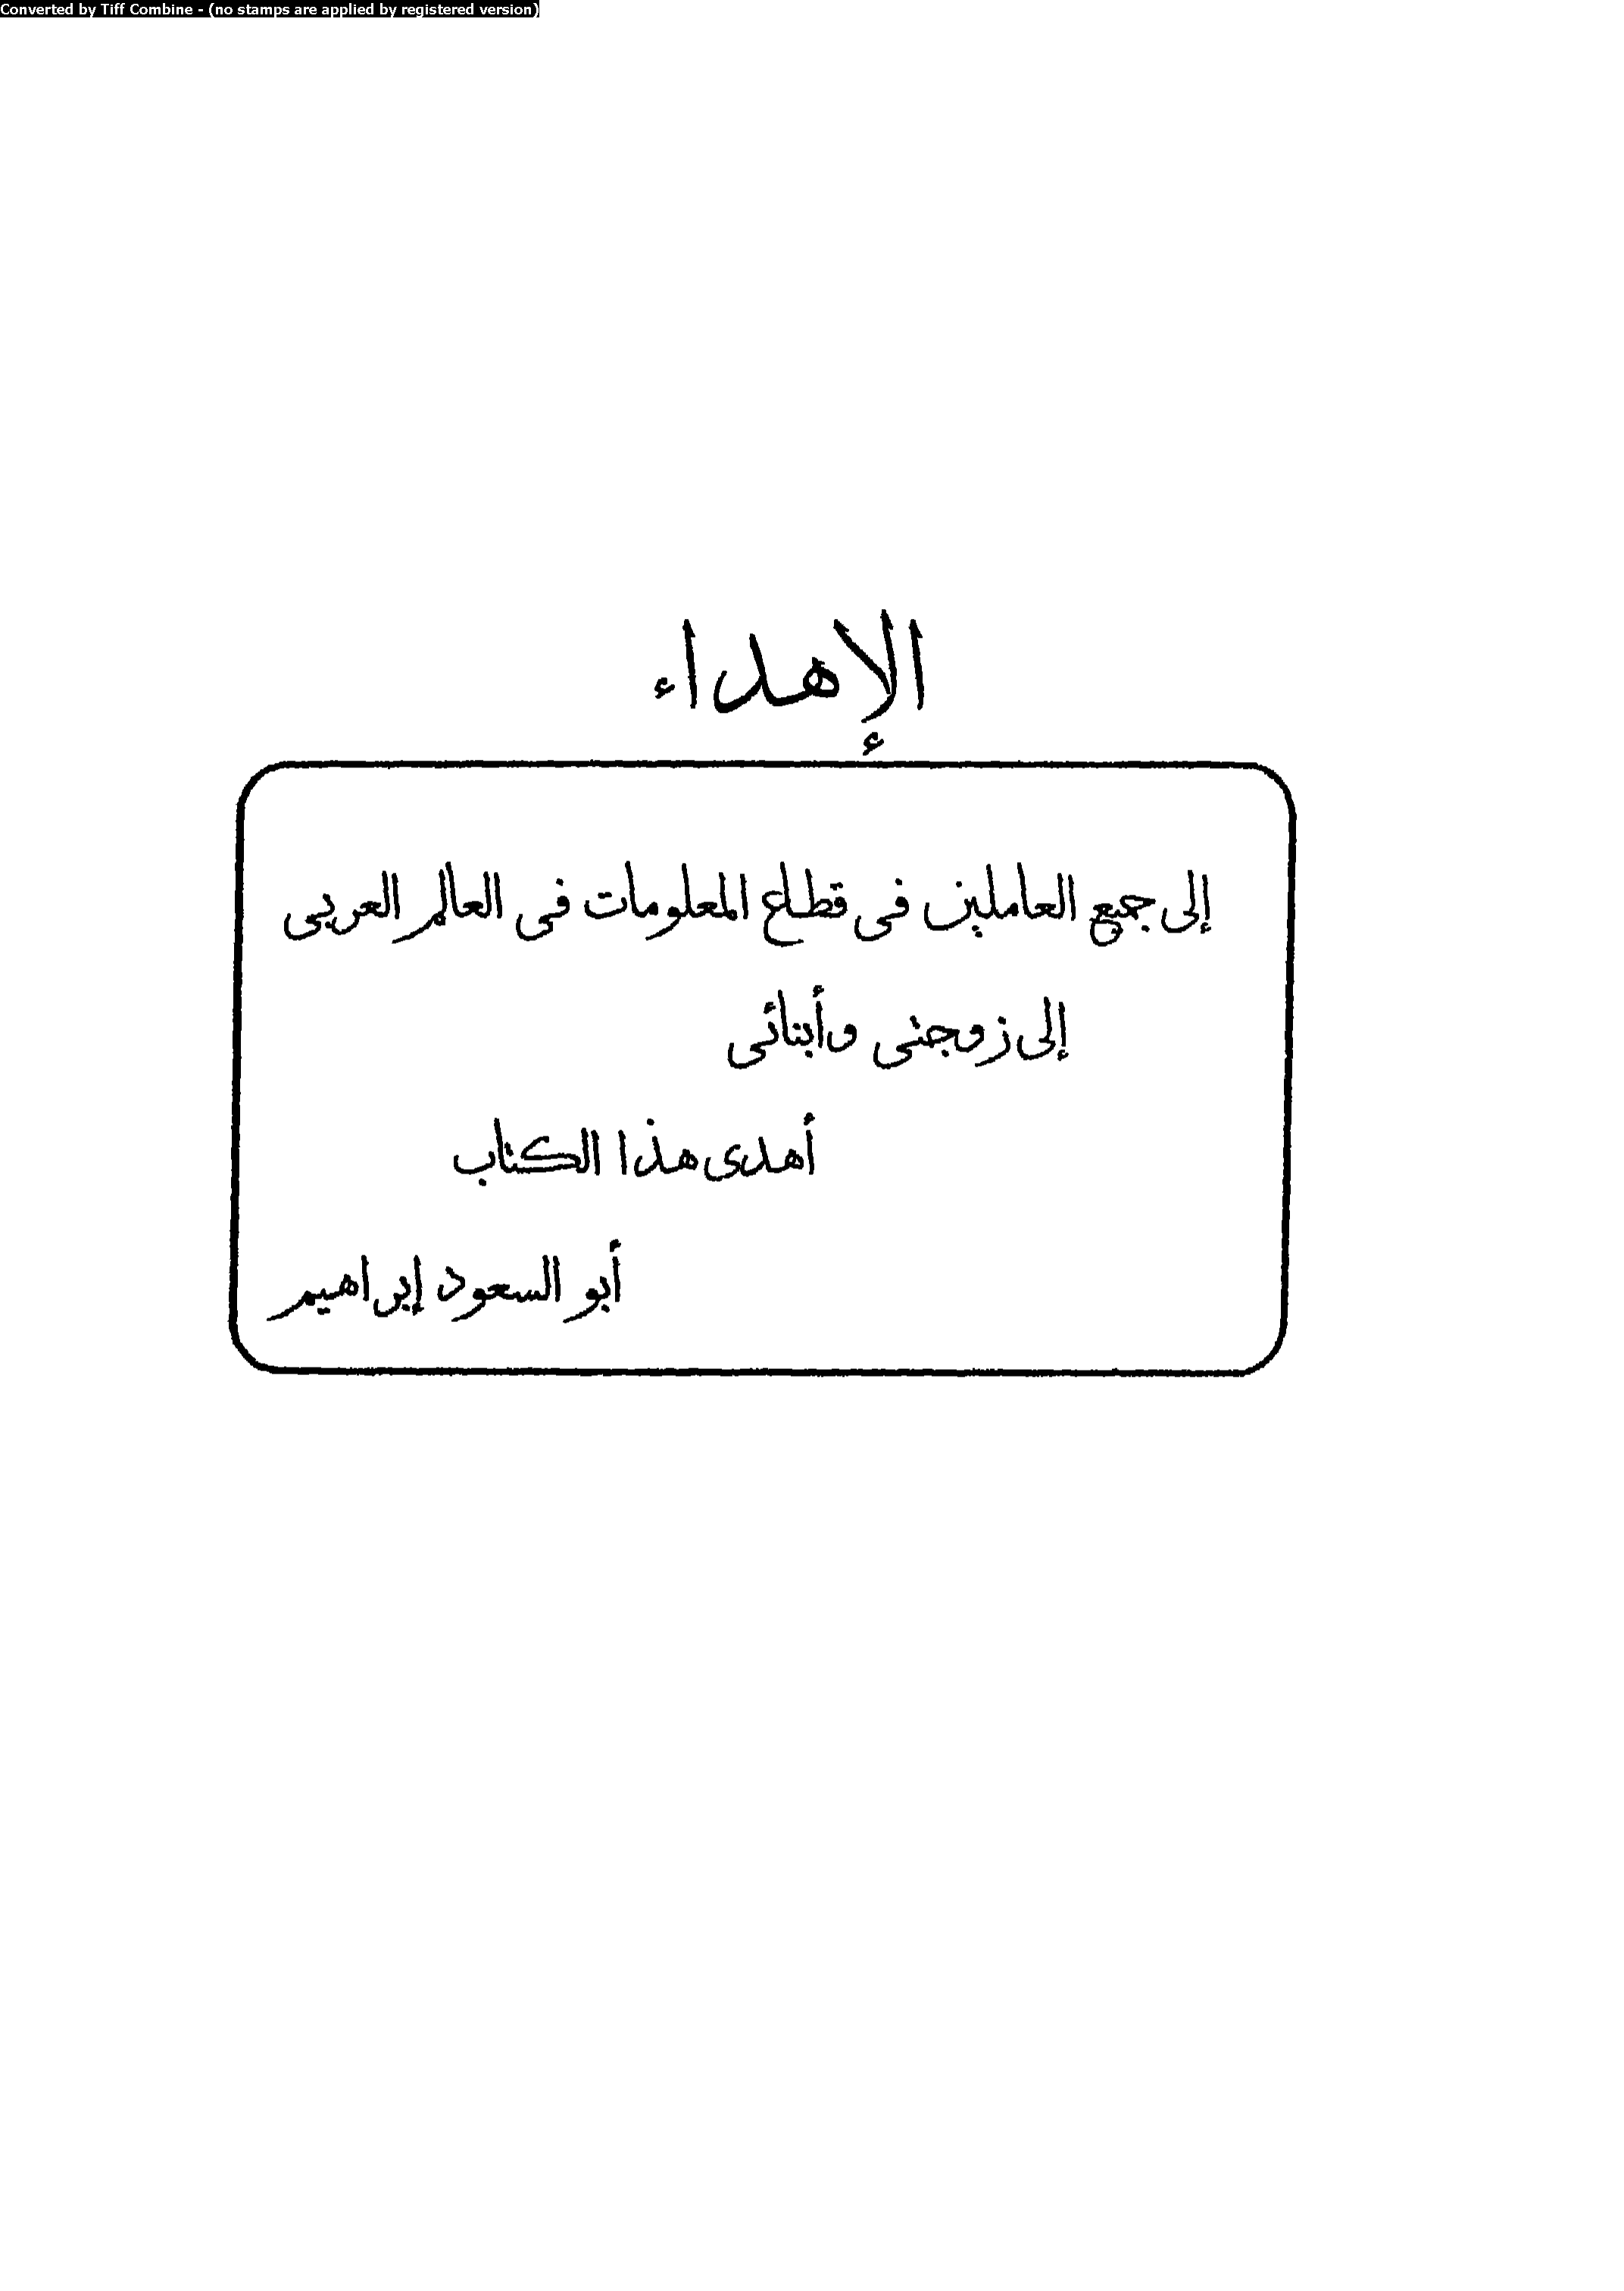 Converted by Tiff Combine - (no stamps are applied by registered version)
الإهداء
إلى جميع العاملين فى قطاع المعلومات فى العالم العربى
إلى زوجتى وأبنائى
أهدى هذا الكتاب
أبو السعود إبراهيم